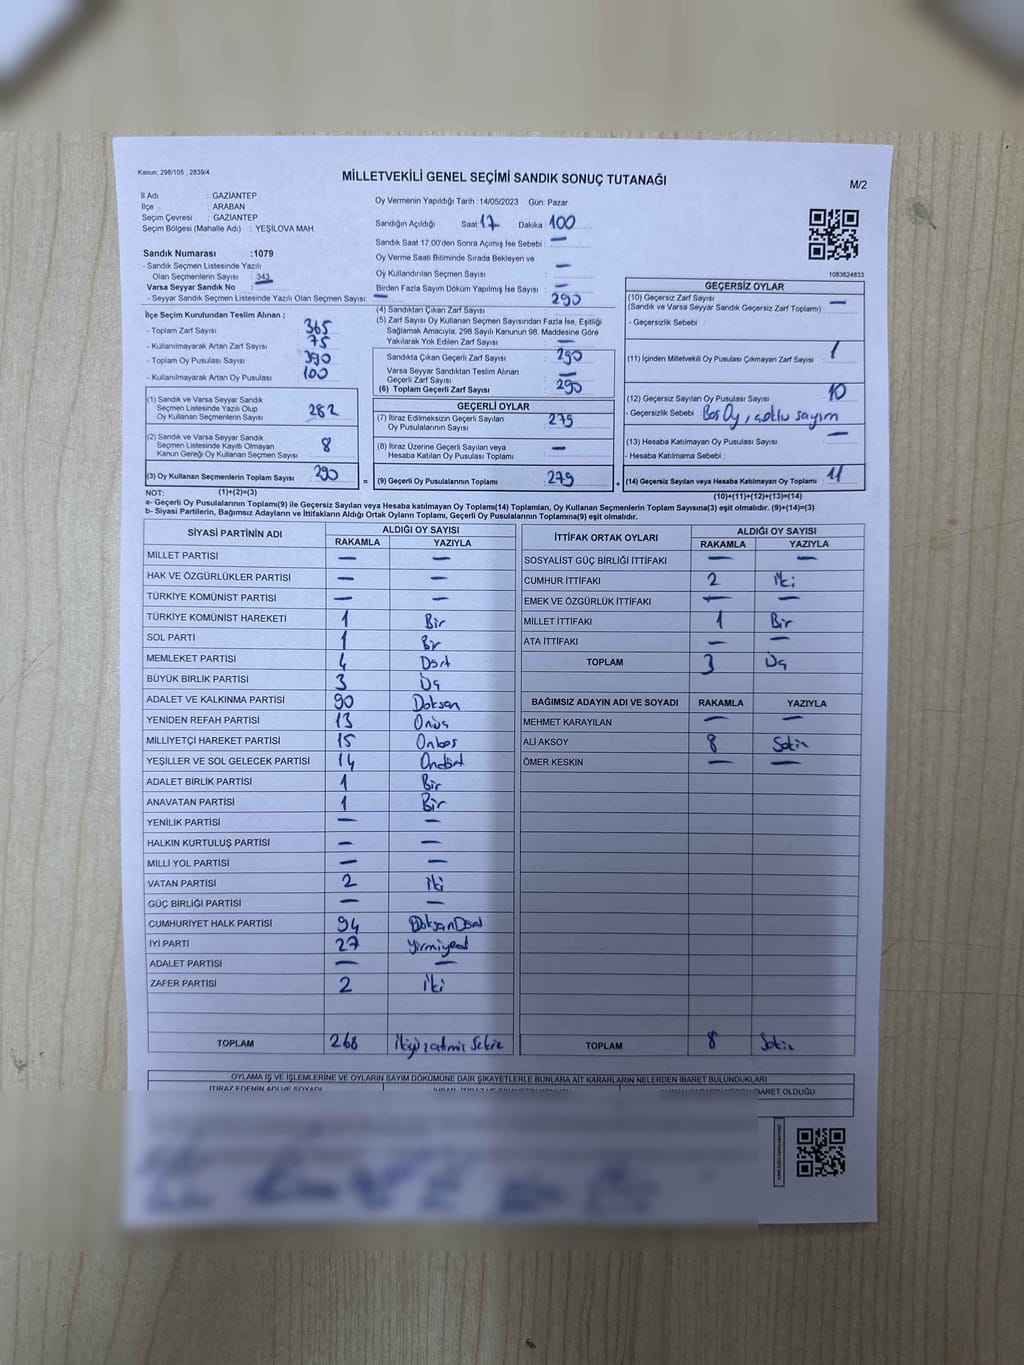 Kanun, 298/105 , 2839/4
MİLLETVEKİLİ GENEL SEÇİMİ SANDIK SONUÇ TUTANAĞI
M/2
İl Adı : GAZİANTEP
İlçe : ARABAN
Seçim Çevresi : GAZİANTEP
Seçim Bölgesi (Mahalle Adı) : YEŞİLOVA MAH.
Sandık Numarası :1079
- Sandık Seçmen Listesinde Yazılı
Olan Seçmenlerin Sayısı : 343
Varsa Seyyar Sandık No :
- Seyyar Sandık Seçmen Listesinde Yazılı Olan Seçmen Sayısı: —
İlçe Seçim Kurulundan Teslim Alınan ;
- Toplam Zarf Sayısı : 365
- Kullanılmayarak Artan Zarf Sayısı : 75
- Toplam Oy Pusulası Sayısı : 390
- Kullanılmayarak Artan Oy Pusulası : 100
(1) Sandık ve Varsa Seyyar Sandık
Seçmen Listesinde Yazılı Olup
Oy Kullanan Seçmenlerin Sayısı : 282
(2) Sandık ve Varsa Seyyar Sandık
Seçmen Listesinde Kayıtlı Olmayan
Kanun Gereği Oy Kullanan Seçmen Sayısı : 8
(3) Oy Kullanan Seçmenlerin Toplam Sayısı : 290
Oy Vermenin Yapıldığı Tarih :14/05/2023 Gün: Pazar
Sandığın Açıldığı Saat: 17 Dakika : 100
Sandık Saat 17:00'den Sonra Açılmış İse Sebebi : —
Oy Verme Saati Bitiminde Sırada Bekleyen ve
Oy Kullandırılan Seçmen Sayısı : —
Birden Fazla Sayım Döküm Yapılmış İse Sayısı : —
(4) Sandıktan Çıkan Zarf Sayısı : 290
(5) Zarf Sayısı Oy Kullanan Seçmen Sayısından Fazla İse, Eşitliği
Sağlamak Amacıyla, 298 Sayılı Kanunun 98. Maddesine Göre
Yakılarak Yok Edilen Zarf Sayısı : —
Sandıkta Çıkan Geçerli Zarf Sayısı : 290
Varsa Seyyar Sandıktan Teslim Alınan
Geçerli Zarf Sayısı : —
(6) Toplam Geçerli Zarf Sayısı : 290
GEÇERLİ OYLAR
(7) İtiraz Edilmeksizin Geçerli Sayılan
Oy Pusulalarının Sayısı : 279
(8) İtiraz Üzerine Geçerli Sayılan veya
Hesaba Katılan Oy Pusulası Toplamı : —
= (9) Geçerli Oy Pusulalarının Toplamı : 279
1083624833
GEÇERSİZ OYLAR
(10) Geçersiz Zarf Sayısı : —
(Sandık ve Varsa Seyyar Sandık Geçersiz Zarf Toplamı)
- Geçersizlik Sebebi :
(11) İçinden Milletvekili Oy Pusulası Çıkmayan Zarf Sayısı : 1
(12) Geçersiz Sayılan Oy Pusulası Sayısı : 10
- Geçersizlik Sebebi : Boş Oy, çoklu sayım
(13) Hesaba Katılmayan Oy Pusulası Sayısı : —
- Hesaba Katılmama Sebebi :
+ (14) Geçersiz Sayılan veya Hesaba Katılmayan Oy Toplamı : 11
NOT: (1)+(2)=(3)
(10)+(11)+(12)+(13)=(14)
a- Geçerli Oy Pusulalarının Toplamı(9) ile Geçersiz Sayılan veya Hesaba katılmayan Oy Toplamı(14) Toplamları, Oy Kullanan Seçmenlerin Toplam Sayısına(3) eşit olmalıdır. (9)+(14)=(3)
b- Siyasi Partilerin, Bağımsız Adayların ve İttifakların Aldığı Ortak Oyların Toplamı, Geçerli Oy Pusulalarının Toplamına(9) eşit olmalıdır.
SİYASİ PARTİNİN ADI ALDIĞI OY SAYISI
RAKAMLA YAZIYLA
MİLLET PARTİSİ — —
HAK VE ÖZGÜRLÜKLER PARTİSİ — —
TÜRKİYE KOMÜNİST PARTİSİ — —
TÜRKİYE KOMÜNİST HAREKETİ 1 Bir
SOL PARTİ 1 Bir
MEMLEKET PARTİSİ 4 Dört
BÜYÜK BİRLİK PARTİSİ 3 Üç
ADALET VE KALKINMA PARTİSİ 90 Doksan
YENİDEN REFAH PARTİSİ 13 Onüç
MİLLİYETÇİ HAREKET PARTİSİ 15 Onbeş
YEŞİLLER VE SOL GELECEK PARTİSİ 14 Ondört
ADALET BİRLİK PARTİSİ 1 Bir
ANAVATAN PARTİSİ 1 Bir
YENİLİK PARTİSİ — —
HALKIN KURTULUŞ PARTİSİ — —
MİLLİ YOL PARTİSİ — —
VATAN PARTİSİ 2 iki
GÜÇ BİRLİĞİ PARTİSİ — —
CUMHURİYET HALK PARTİSİ 94 DoksanDört
İYİ PARTİ 27 yirmiyedi
ADALET PARTİSİ — —
ZAFER PARTİSİ 2 iki
TOPLAM 268 ikiyüzatmış Sekiz
İTTİFAK ORTAK OYLARI ALDIĞI OY SAYISI
RAKAMLA YAZIYLA
SOSYALİST GÜÇ BİRLİĞİ İTTİFAKI — —
CUMHUR İTTİFAKI 2 iki
EMEK VE ÖZGÜRLÜK İTTİFAKI — —
MİLLET İTTİFAKI 1 Bir
ATA İTTİFAKI — —
TOPLAM 3 Üç
BAĞIMSIZ ADAYIN ADI VE SOYADI RAKAMLA YAZIYLA
MEHMET KARAYILAN — —
ALİ AKSOY 8 Sekiz
ÖMER KESKİN — —
TOPLAM 8 Sekiz
OYLAMA İŞ VE İŞLEMLERİNE VE OYLARIN SAYIM DÖKÜMÜNE DAİR ŞİKAYETLERLE BUNLARA AİT KARARLARIN NELERDEN İBARET BULUNDUKLARI
İTİRAZ EDENİN ADI VE SOYADI
İBARET OLDUĞU